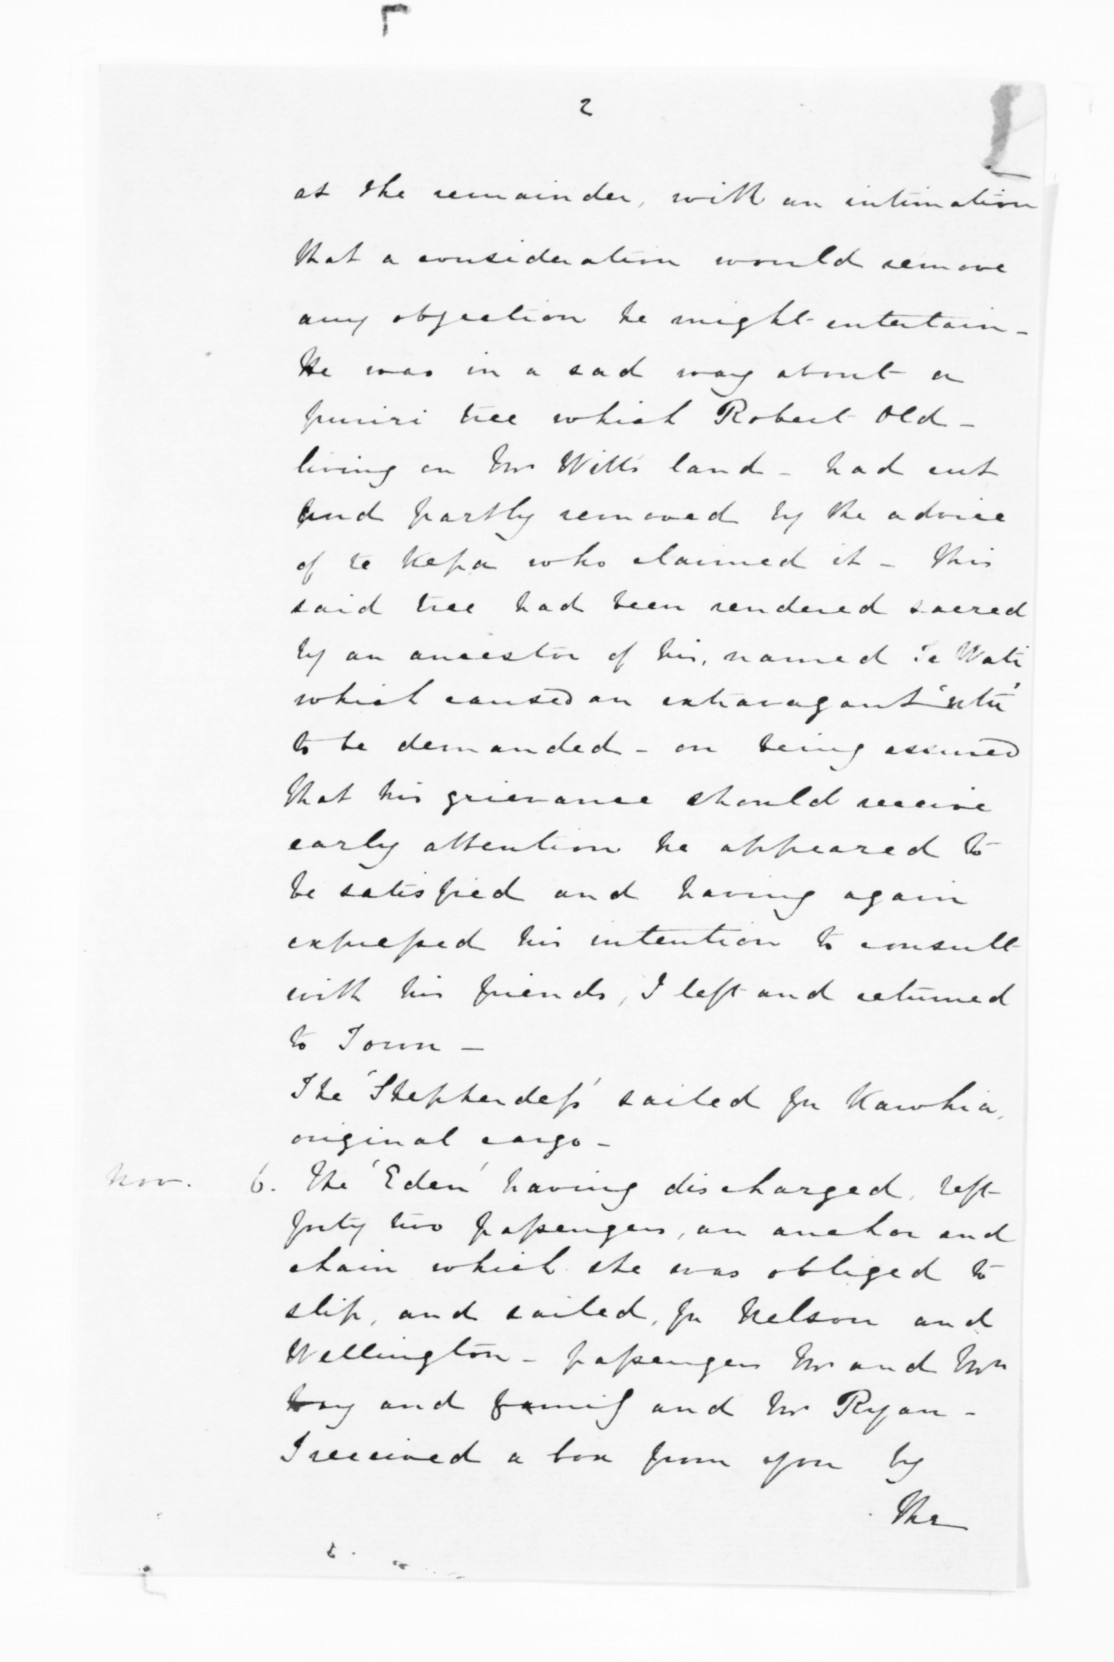 2
as the remainder, with an intimation
that a consideration would remove
any objection he might entertain -
He was in a sad way about a
puriri tree which Robert Old -
living on Mr Witts land - had cut
and partly removed by the advice
of te Kepa who claimed it - This
said tree had been rendered sacred
by an ancestor of his, named Te Wati
which caused an extravagant 'utu'
to be demanded - on being assured
that his grievance should receive
early attention he appeared to
be satisfied and having again
expressed his intention to consult
with his friends, I left and returned
to Town -
The 'Shepherdess' sailed for Kawhia,
original cargo -
Nov. 6. The 'Eden' having discharged, left
forty two passengers, an anchor and
chain which she was obliged to
slip, and sailed, for Nelson and
Wellington - passengers Mr and Mrs
and family and Mr Ryan -
I received a box from you by
the